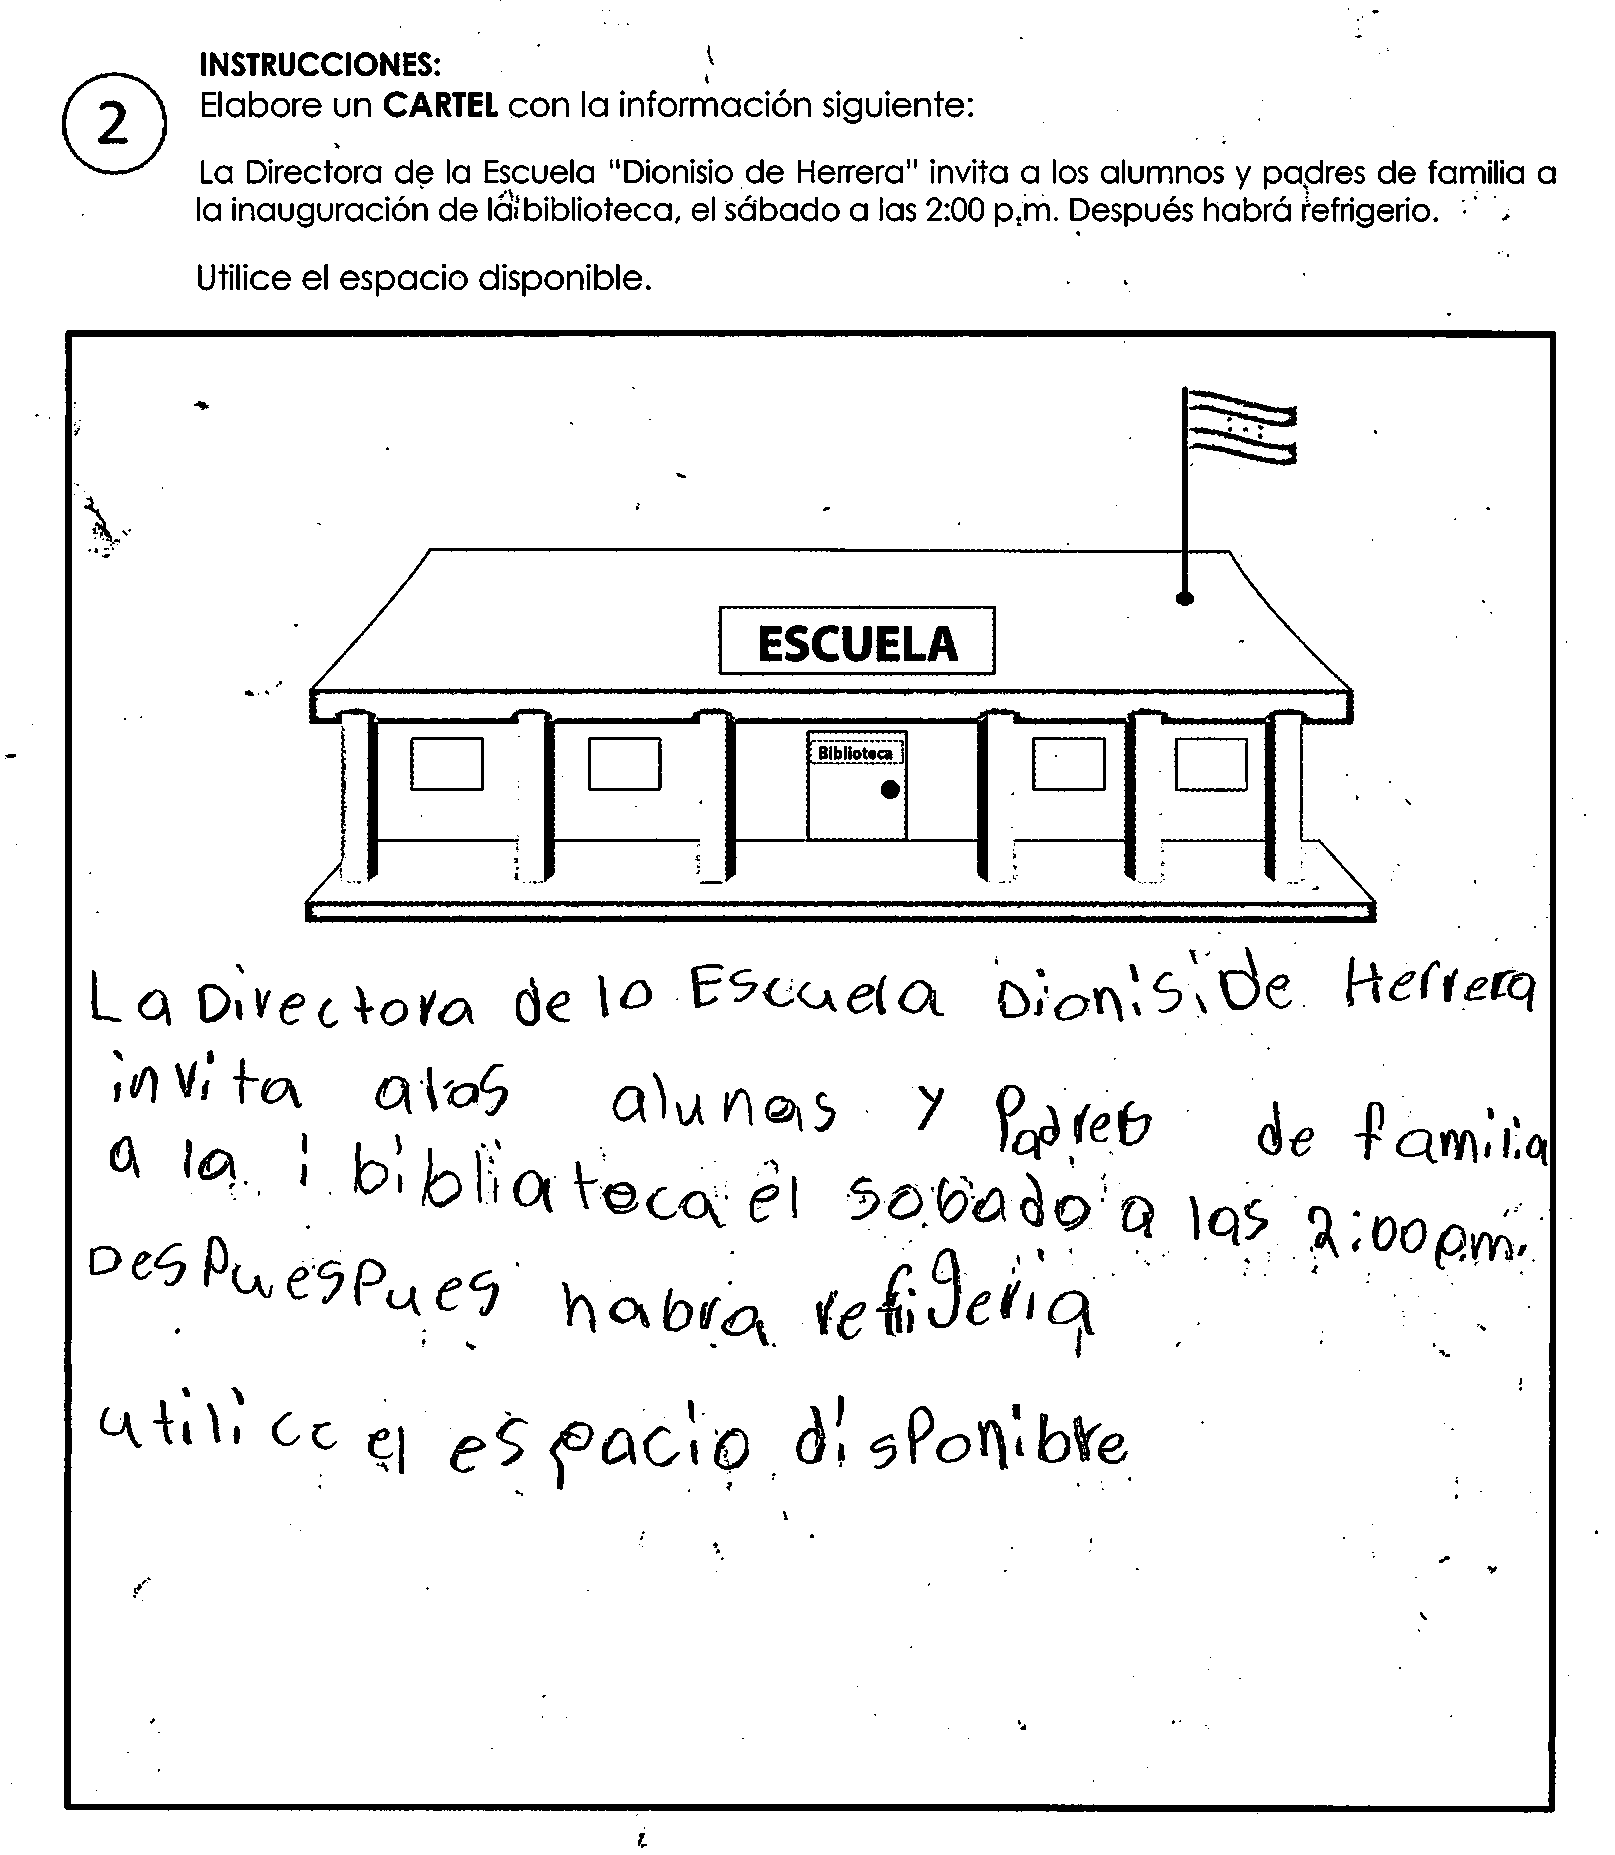 INSTRUCCIONES:
2
Elabore un CARTEL con la información siguiente:
La Directora de la Escuela "Dionisio de Herrera" invita a los alumnos y padres de familia a
la inauguración de la biblioteca, el sábado a las 2:00 p.m. Después habrá refrigerio.
Utilice el espacio disponible.
ESCUELA
Biblioteca
La Directora de lo Escuela Dionisi De Herrera
invita alos alunos y Padres de familia
a la i bibliateca el sobado a las 2:00 p.m.
DesPuesPues habra refrigeria
utilice el espacio disPonible